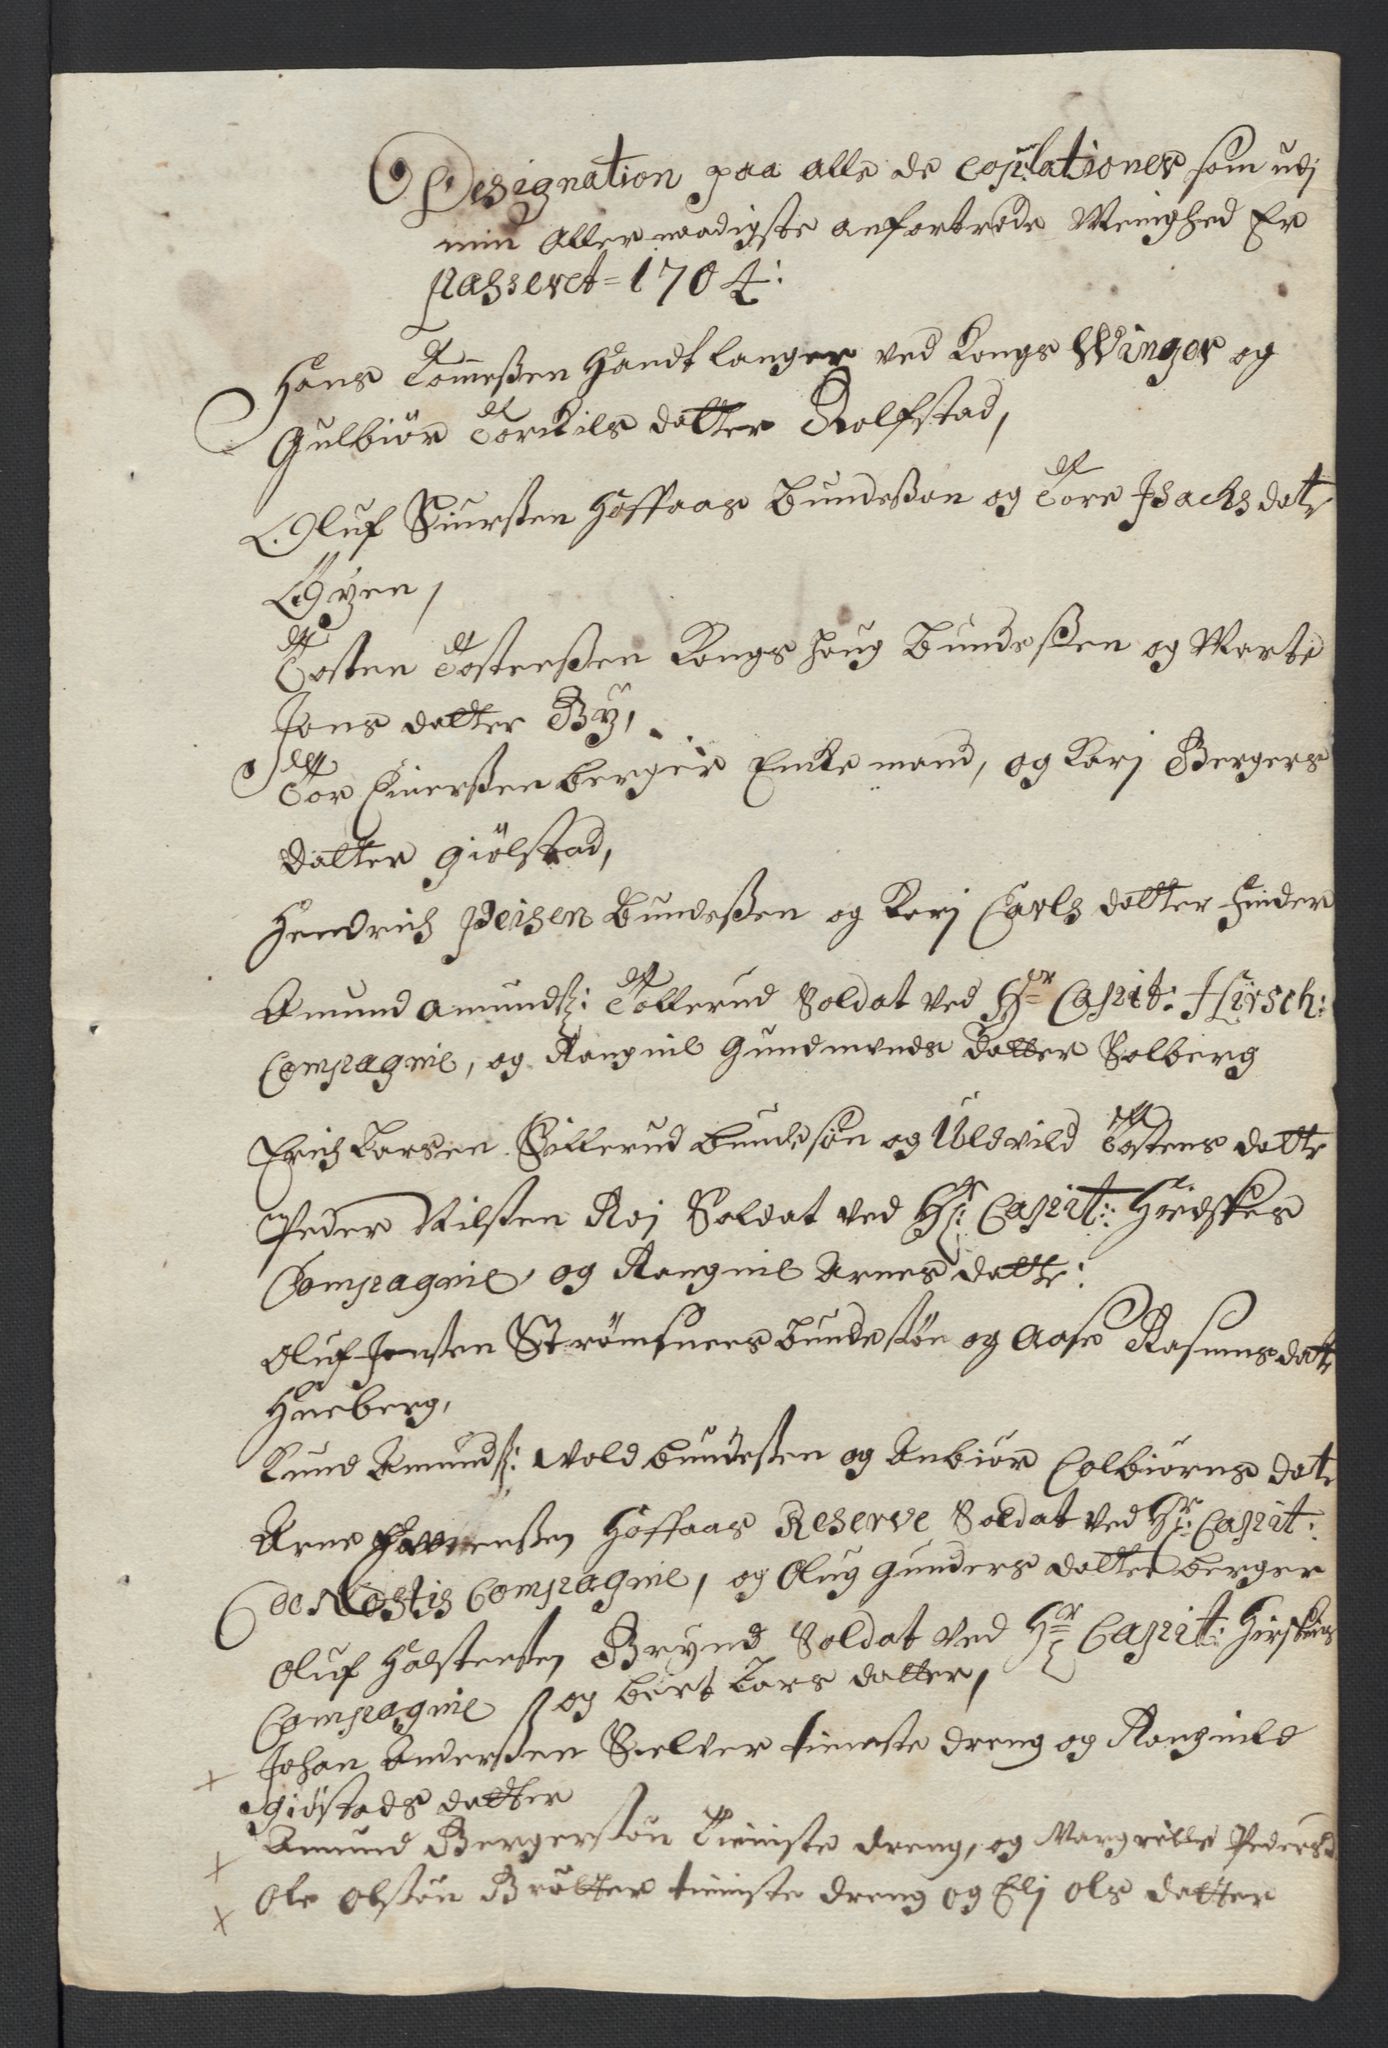 Designation paa alle de Copulationer som udj
min aller naadigste anfortrode Meinghed Er
passeret = 1704:
Hans Tommeßen Handtlanger ved Kongs Winger og
Gulbiør Torkils datter Rolfstad,
Oluf Siurßen Hoffaas Bundeßøn og Tore Isachs datr
Øyen,
Tosten Tostenßen Kongshoug Bundeßen og Marte
Jons datter By,
Tor Einerßen berger Enke mand, og Karj Bergers
datter Giølstad,
Hendrich Bundeßen og Karj Carls datter
Amund Amundß: Tollerud Soldat ved Hr Capit: Hirsch:
Compagnie, og Rangnil Gundmunds datter Solberg
Erich Larsen Sillerud bundesøn og Uldvild Tostens dattr
Peder Nilsen Roj Soldat ved Hr: Capit: Hirdskes
Compagnie, og Rangnil Arnes datte:
Oluf Jensen Strømsnees bundesøn og Aase Rasmus datt
Hueberg,
Knud Amundß: wold bundeßen og Anbiør Colbiørns dat
Arne Hoffaas Reserve Soldat ved Hr: Capit:
de Nostis Compagnie, og Oluy Gunders datter berger
Oluf Halstensen Brynd Soldat ved Hr Capit:
Compagnie og bert Lars datter,
+ Johan Anderßen Sælver tieneste dreng og Rangnild
Giøstads datter
+ Amund Bergersøn Tieniste dreng, og Margrette Peders d
+ Ole Olsøn Brøtter tieniste dreng og Elj Ols datter